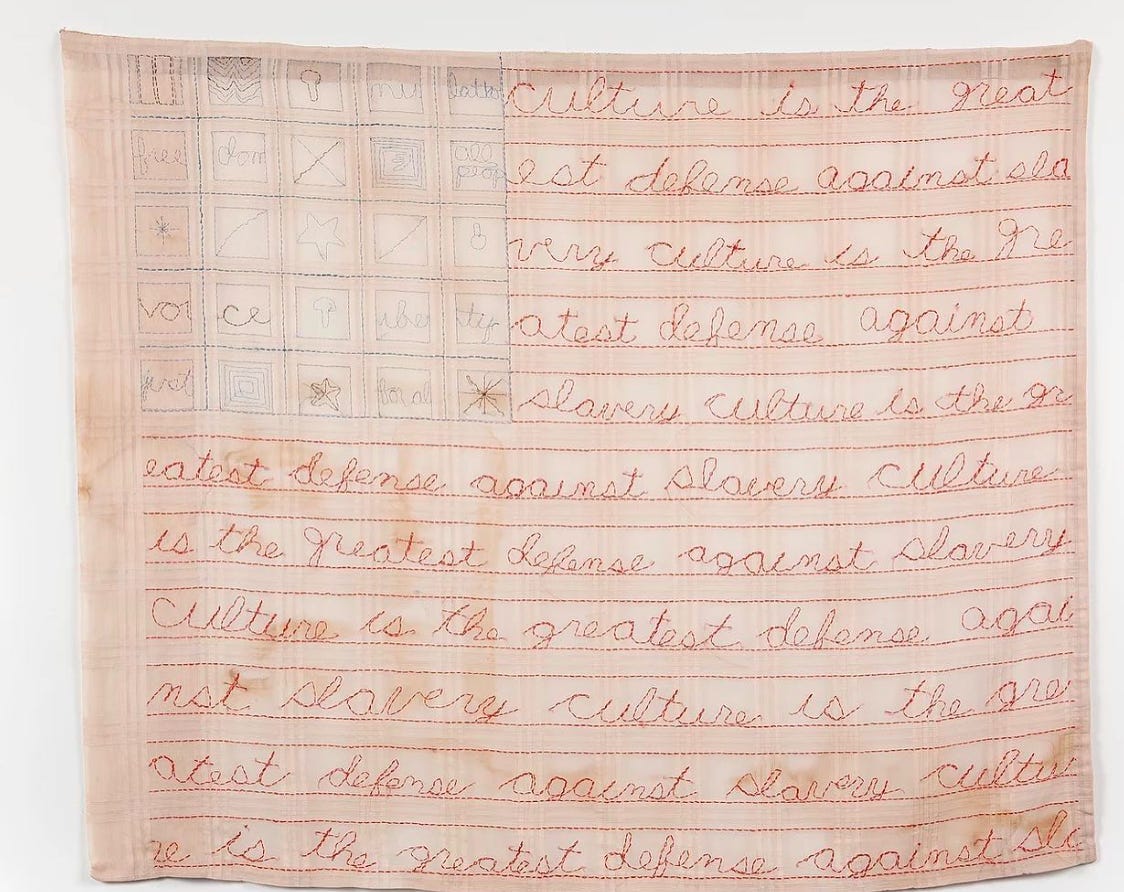 mu latto
free dom all
peop
voi ce libe rty
just for al
culture is the great
est defense against sla
very culture is the gre
atest defense against
slavery culture is the gr
eatest defense against slavery culture
is the greatest defense against slavery
culture is the greatest defense agai
nst slavery culture is the gre
atest defense against slavery cultu
re is the greatest defense against sla